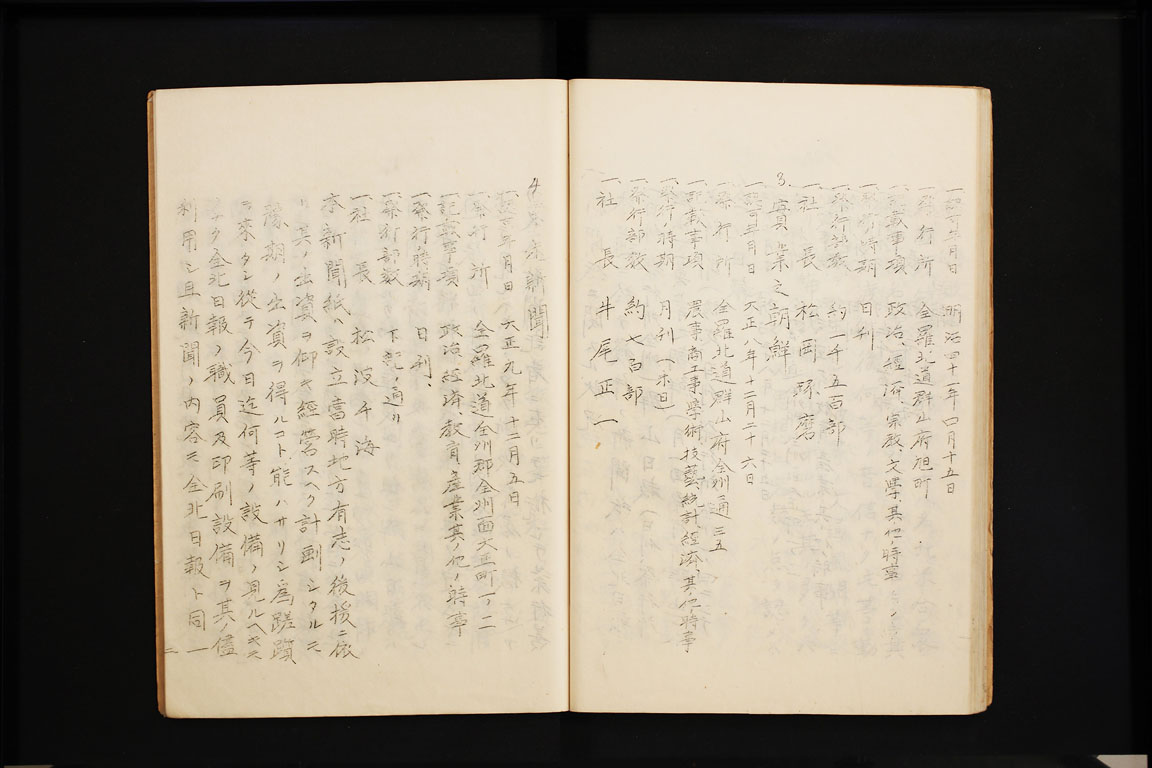 一、認可年月日 明治四十一年四月十五日
一、發行所 全羅北道群山府旭町
一、記載事項 政治、經済、宗教、文學、其他ノ時事
一、發行時期 日刊
一、發行部数 約一千五百部
一、社長 松岡琢磨
3. 實業之朝鮮
一、認可年月日 大正八年十二月二十六日
一、發行所 全羅北道群山府全州通三五
一、記載事項 農事、商工事、學術、技藝、統計、経済、其ノ他ノ時事
一、發行ノ時期 月刊(末日)
一、發行部数 約七百部
一、社長 牛尾正一
4 新聞
一、認可年月日 大正九年十二月五日
一、發行所 全羅北道全州郡全州面大正町一ノ二
一、記載事項 政治、経済、教育、産業、其ノ他ノ時事
一、發行時期 日刊、
一、發行部数 下記ノ通リ
一、社長 松波千海
本新聞紙ハ設立當時地方有志ノ後援ニ依
リ其ノ出資ヲ仰キ経営スヘク計画シタルモ
豫期ノ出資ヲ得ルコト能ハサリシ為蹉躓
ヲ來タシ從テ今日迄何等ノ設備ノ見ルヘキモ
ナク全北日報ノ職員及印刷設備ヲ其ノ儘
利用シ且新聞ノ内容モ全北日報ト同一
二